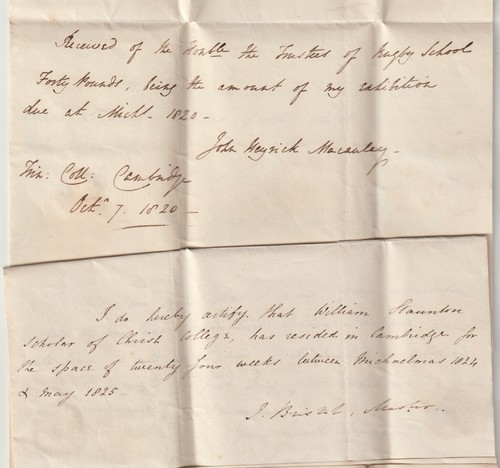 Received of the Honble the Trustees of Rugby School
Forty Pounds, being the amount of my exhibition
due at Michs. 1820 -
John Heyrick Macaulay -
Trin: Coll: Cambridge
Octr. 7. 1820 -
I do hereby certify that William Staunton
Scholar of Christ College, has resided in Cambridge for
the space of twenty four weeks between Michaelmas 1824
& May 1825
J. Bristol, Master.